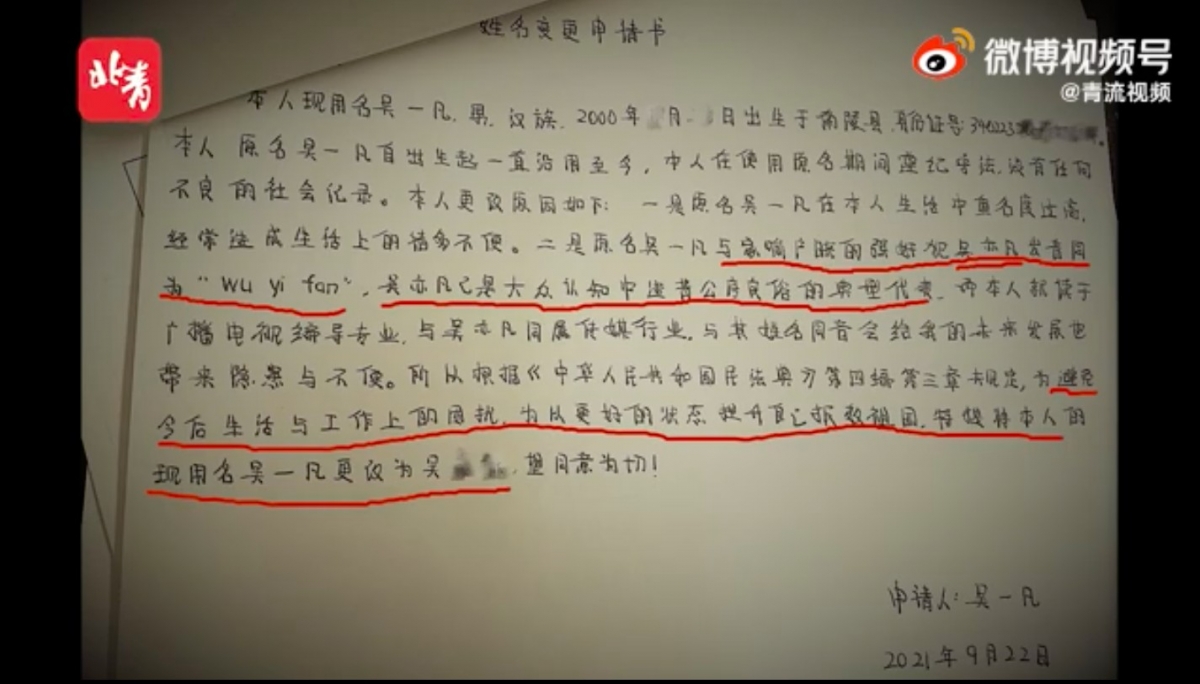 北青
微博视频号
@青流视频
姓名变更申请书
本人现用名吴一凡,男,汉族,2000年 月 日出生于南陵县,身份证号:340223
本人原名吴一凡自出生起一直沿用至今,本人在使用原名期间遵纪守法,没有任何
不良的社会记录。本人更改原因如下:一是原名吴一凡在本人生活中重名度过高,
经常造成生活上的诸多不便。二是原名吴一凡与家喻户晓的强奸犯吴亦凡发音同
为“wu yi fan”,吴亦凡已是大众认知中违背公序良俗的典型代表,而本人就读于
广播电视编导专业,与吴亦凡同属传媒行业,与其姓名同音会给我的未来发展也
带来隐患与不便。所以根据《中华人民共和国民法典》第四编第三章规定,为避免
今后生活与工作上的困扰,为以更好的状态提升自己报效祖国,特 将本人的
现用名吴一凡更改为吴 ,望同意为切!
申请人:吴一凡
2021年9月22日